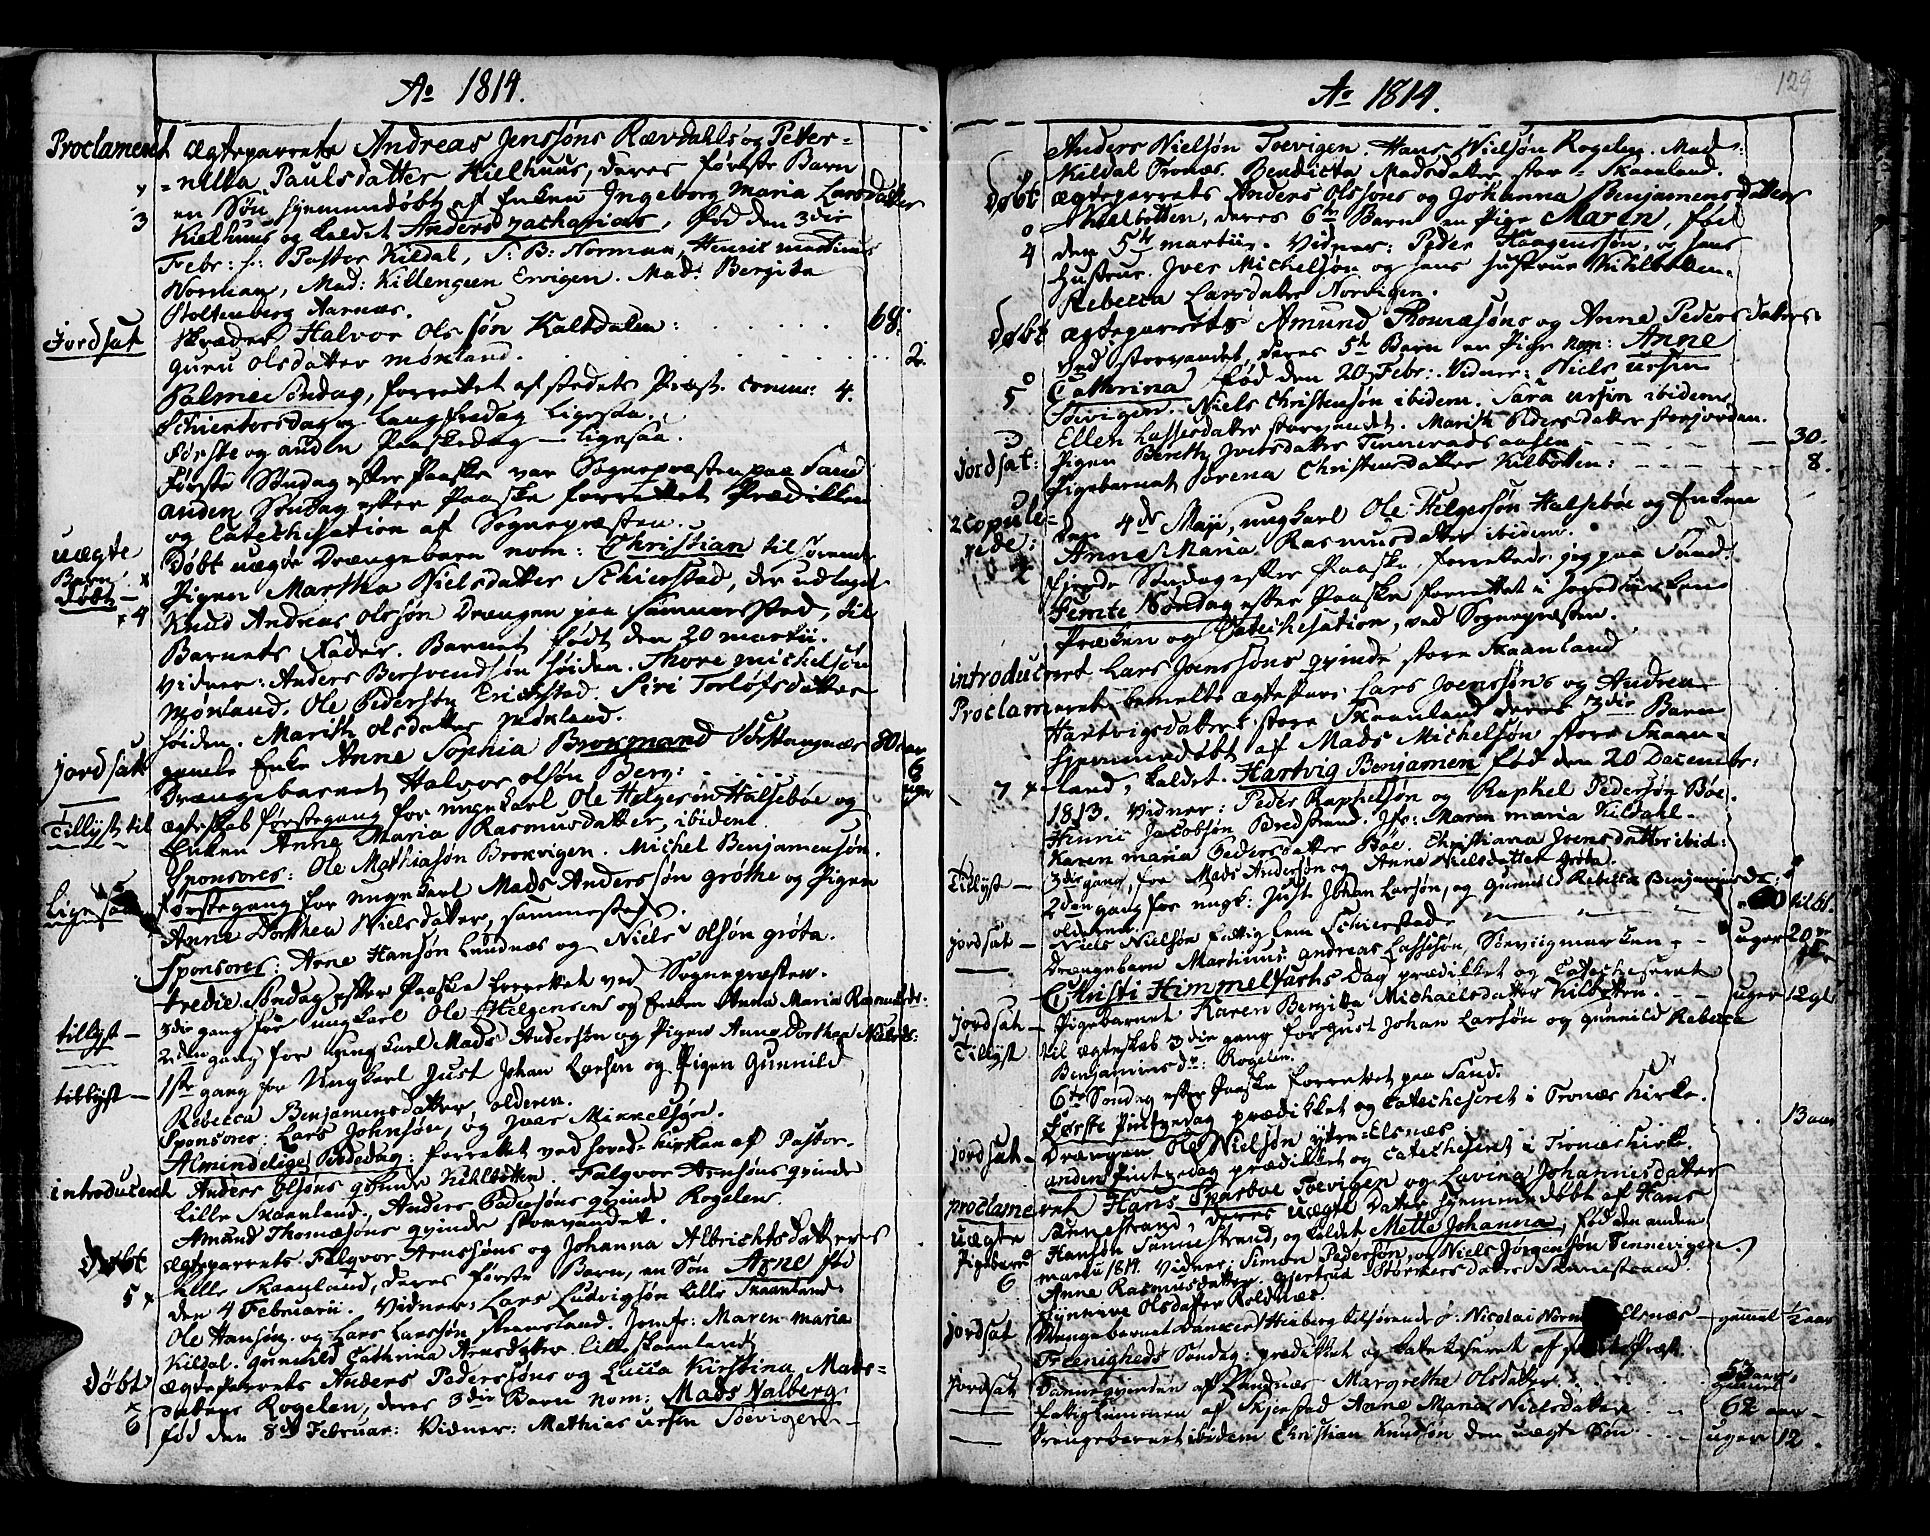 Ao 1814.
Proclameret Ægteparrets Andreas Jenssøns Rævdahls og Peter=
=nilla Paulsdatter Kielhuus, deres første Barn
en Søn hjemmedøbt af Enken Ingeborg Maria Larsdatter
3 Kielhuus og kaldet Anders Zacharias, fød den 3die
Febr: f: Pastor Kildal, S: B: Norman, Henric Martinus
Norman, Mad: Killengreen Ervigen. Mad: Bergita
Stoltenberg Aarnæs.
Jordsat Skræder Halvor Olssøn Kaltdalen: 68.
Guru Olsdatter Møkland. 2.
Palme Søndag, forrettet af stedets Præst. comm: 4.
Schiertorsdag og Langfredag ligesaa.
Første og anden Paaskedag - ligesaa.
Første Søndag efter Paaske var Sognepræsten paa Sand
anden Søndag efter Paaske forrettet Prædikken
og Catechisation af Sognepræsten.
uægte Barn døbt Døbt uægte Drængebarn nom: Christian tilhørende
Pigen Martha Nielsdatter Schierstad, der udlagde
4 Knud Andreas Olssøn Drængen paa Sammested, til
Barnets Fader. Barnet født den 20 Martii.
Vidner: Anders Bersvendsøn Høiden. Thore Michelsøn
Møkland. Ole Pedersøn Erichstad. Siri Torlofsdatter
Høiden. Marith Olsdatter Møkland.
Jordsat gamle Enke Anne Sophia Brokmand 80 aar
Drængebarnet Halvor Olsøn Berg: 6 uger
Tillyst til ægteskab førstegang for ungekarl Ole Helgesøn Halsebøe og
Enken Anne Maria Rasmusdatter, ibidem.
Sponsores: Ole Mathiasøn Brokvigen. Michel Benjamensøn.
Ligesaa førstegang for ungekarl Mads Anderssøn Grøthe og Pigen
Anne Dorthea Nielsdatter, sammesteds.
Sponsores: Arne Hansøn Lundnæs og Niels Olsøn Grøta.
Tredie Søndag efter Paaske forrettet ved Sognepræsten.
tillyst - 3die gang for ungkarl Ole Helgensen og Enken Anna Maria Rasmusds:
2den gang for ungkarl Mads Andersøn og Pigen Anne Dorthea Nielsds:
tillyst - 1ste gang for Ungkarl Just Johan Larsen og Pigen Gunnild
Rebecca Benjamensdatter, olderen.
Sponsores: Lars Johnsøn, og Iver Mikkelsøn.
Almindelige Bededag: forrettet ved Hoved-Kirken af Pastor.
introduceret Anders Olsøns qvinde Kihlbotten. Falqvor Arnsøns qvinde
Lille Skaanland, Anders Pedersøns qvinde Rogelen.
Amund Thomæsøns qvinde Storvandet.
Døbt Ægteparrets Falqvor Arnssøns og Johanna Albrichtsdatters
5 Lille Skaanland, deres første Barn, en Søn Arne fød
den 4 Februarii. Vidner: Lars Ludvigsøn Lille Skaanland
Ole Hansøn og Lars Larssøn Steensland. Jomfr: Maren Maria
Kildal. Gunnild Cathrina Arnsdatter Lille Skaanland
Døbt Ægteparrets Anders Pederssøns og Lucca Kirstina Mads-
daters Rogelen, deres 3die Barn nom: Mads Nalberg
6 fød den 8de Februar: Vidner: Mathias Ursin Toevigen -
Ao 1814.
129
Anders Nielsøn Toevigen. Hans Nielsøn Rogelen. Mad:
Kildal Tronæs. Benedicta Madsdatter stor-Skaanland.
Døbt Ægteparrets Anders Olssøns og Johanna Benjamensdatters
Kihlbotten, deres 6te Barn en Pige Maren, fød
4 den 5te Martii. Vidner: Peder Haagenssøn, og hans
Hustrue. Iver Michelsøn og hans Hustrue Kihlbotten-
Rebecca Larsdatter Norvigen.
Døbt Ægteparrets Amund Thomæsøns og Anne Pedersdaters
ved Storvandet, deres 5te Barn en Pige nom: Anne
5 Cathrina, fød den 20 Febr: Vidner: Niels Ursin
Toevigen. Niels Christensøn ibidem. Sara Ursin ibidem
Ellen Lassesdatter Storvandet. Marith Pedersdatter Storjordan.
Jordsat: Pigen Bereth Iversdatter Tennevadsaasen 30.
Pigebarnet Sørena Christensdatter Kilbotten: 8.
2 copulerede: den 4de Maji, ungkarl Ole Helgessøn Halsebøe og Enken
Anne Maria Rasmusdatter ibidem.
Fierde Søndag efter Paaske, forrettede jeg paa Sand.
Femte Søndag efter Paaske forrettet i Hovedkirken
Præken og Catechisation, ved Sognepræsten.
introduceret Lars Joenssøns qvinde store Skaanland
Proclameret, bemelte Ægtepars Lars Joenssøns og Andrea
Hartvigsdatters store Skaanland deres 3die Barn
hjemmedøbt af Mads Michelsøn store Skaan-
7 land, kaldet. Hartvig Benjamen fød den 20 Decembr:
1813. Vidner: Peder Raphelsøn og Raphel Pedersøn Bøe.
Henric Jacobsøn Bredstrand. Jfr: Maren Maria Kildahl.
Karen Maria Pedersdatter Bøe. Christiana Joensdatter ibid:
Tillyst - 3die gang, for Mads Andersøn og Anne Nielsdatter Grøta.
2den gang for ungk: Just Johan Larsøn, og Gunnild Rebecca Benjaminsdr.
olderen.
Jordsat - Niels Nielsøn Fattiglem Schierstad 60 til 61.
Drængebarn Martinus Andreas Lassesøn Toevigmarken uger 20
Christi Himmelfarts Dag prædikket og Catecheseret
Jordsat - Pigebarnet Karen Bergitta Michaelsdatter Kilbotten. uger 12 gl.
Tillyst til ægteskab 3die gang for Just Johan Larsøn og Gunnild Rebecca
Benjaminsdr: Rogelen.
6te Søndag efter Paaske forrettet paa Sand.
Første Pintzedag prædikket og Catecheseret i Tronæs Kirke.
Jordsat - Drængen Ole Nielsøn ytre-Elsnæs 13 aar
anden Pintzedag prædikket og Catecheseret i Tronæs Kirke
proclameret Hans Sparboe Toevigen og Lavina Johannesdatter
uægte Sannestrand, deres uægte Datter hjemmedøbt af Hans
Pigebarn Hansøn Sannestrand, og kaldet Mette Johanna, fød den anden
6 Martii 1814. Vidner: Simon Pedersøn, og Niels Jørgensøn Tennevigen.
Anne Rasmusdatter. Giertrud Størkersdater Sannestrand.
Hynnive Olsdatter Roldnæs.
Jordsat Drengebarnet Danckert Hieberg tilhørende S: Nicolai Norm Elsnæs - gammel ½ aar
Treenigheds Søndag: prædikket og Catekiseret af Stedets Præst.
Jordsat Dannequinden af Sandnæs Margrethe Olsdatter 53 aar gammel
Fattiglemmen af Skjerstad Anne Maria Nielsdatter 62 aar -
Drengebarnet ibidem Christian Knudsøn den uægte Søn uger 12.